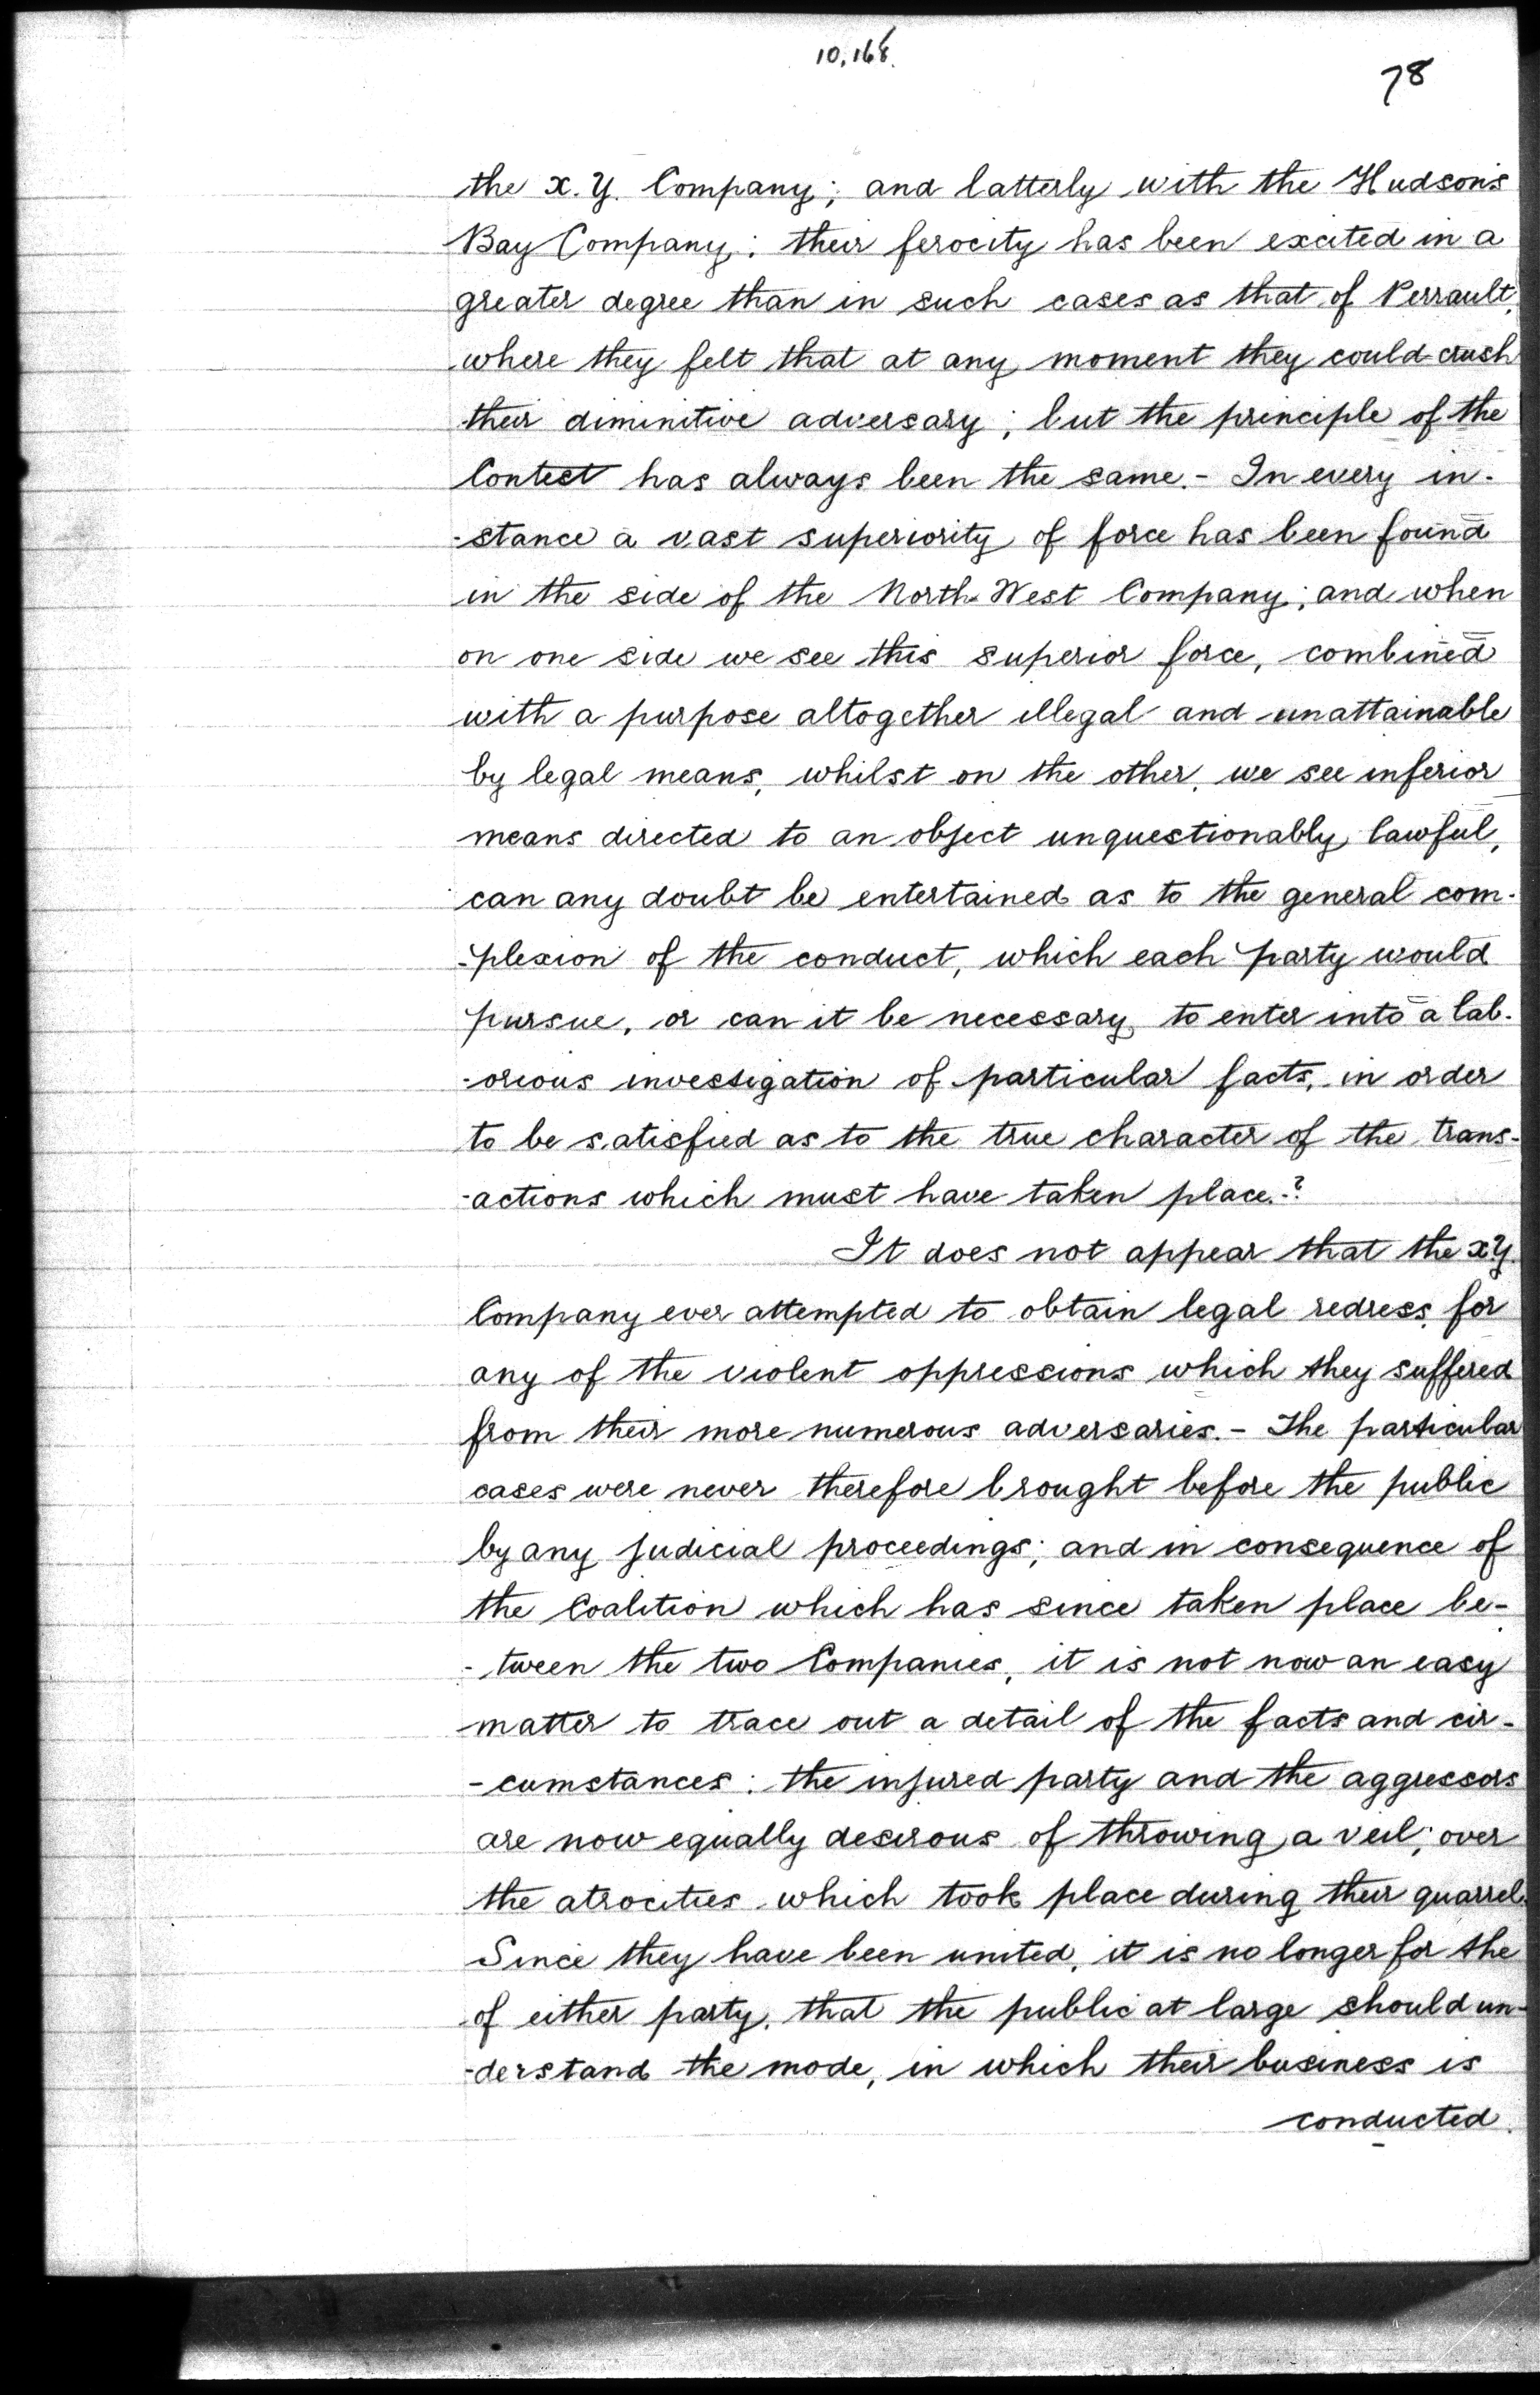 10,168.
78
the X. Y. Company; and latterly with the Hudson's
Bay Company: their ferocity has been excited in a
greater degree than in such cases as that of Perrault,
where they felt that at any moment they could crush
their diminitive adversary; but the principle of the
Contest has always been the same. - In every in-
-stance a vast superiority of force has been found
in the side of the North-West Company; and when
on one side we see this superior force, combined
with a purpose altogether illegal and unattainable
by legal means, whilst on the other, we see inferior
means directed to an object unquestionably lawful,
can any doubt be entertained as to the general com-
-plexion of the conduct, which each party would
pursue, or can it be necessary to enter into a lab-
-orious investigation of particular facts, in order
to be satisfied as to the true character of the trans-
-actions which must have taken place.?
It does not appear that the XY.
Company ever attempted to obtain legal redress for
any of the violent oppressions which they suffered
from their more numerous adversaries. - The particular
cases were never therefore brought before the public
by any judicial proceedings; and in consequence of
the Coalition which has since taken place be-
-tween the two Companies, it is not now an easy
matter to trace out a detail of the facts and cir-
-cumstances: the injured party and the aggressors
are now equally desirous of throwing a veil; over
the atrocities which took place during their quarrel.
Since they have been united, it is no longer for the
of either party, that the public at large should un-
-derstand the mode, in which their business is
conducted.